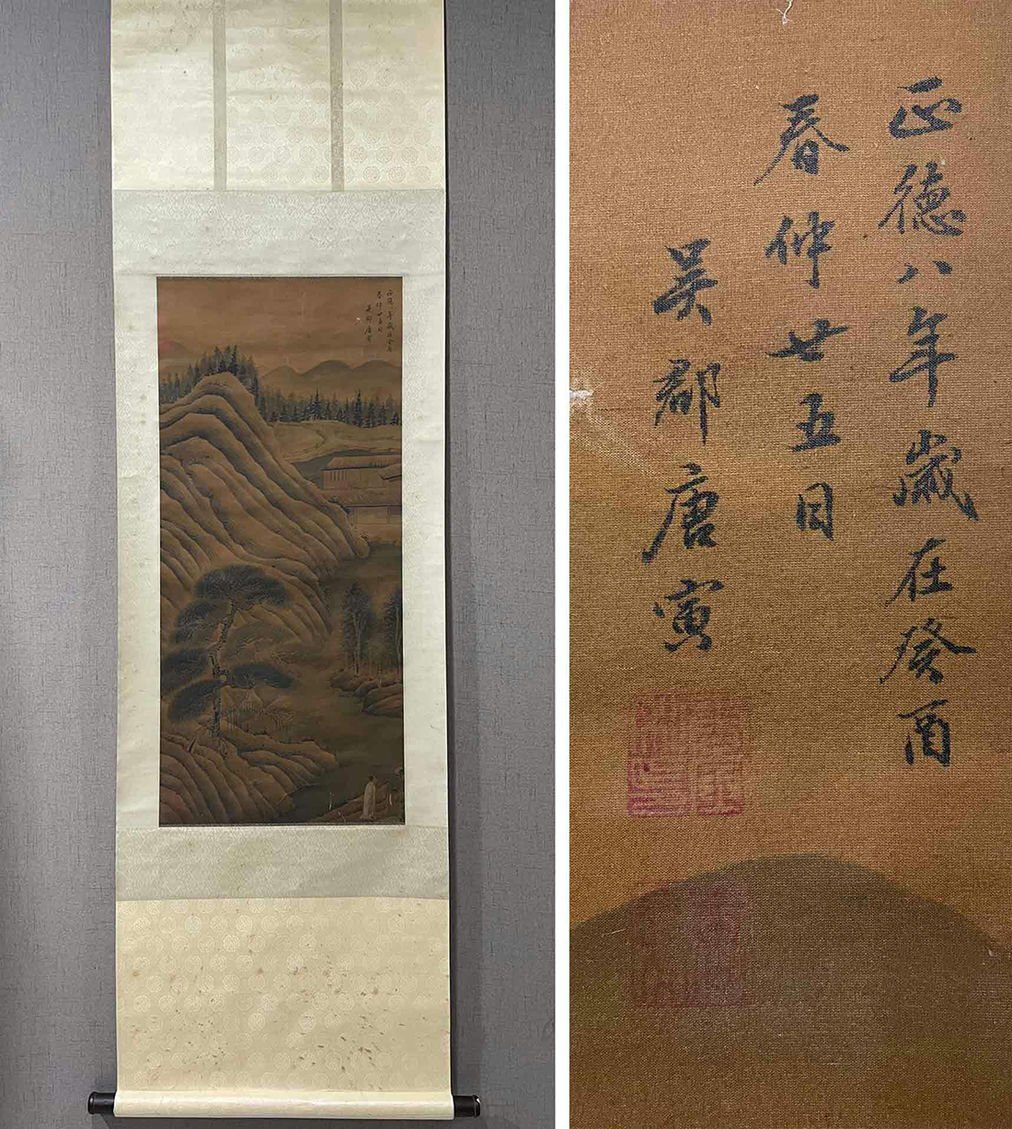 正德八年歲在癸酉
春仲廿五日
吴郡唐寅